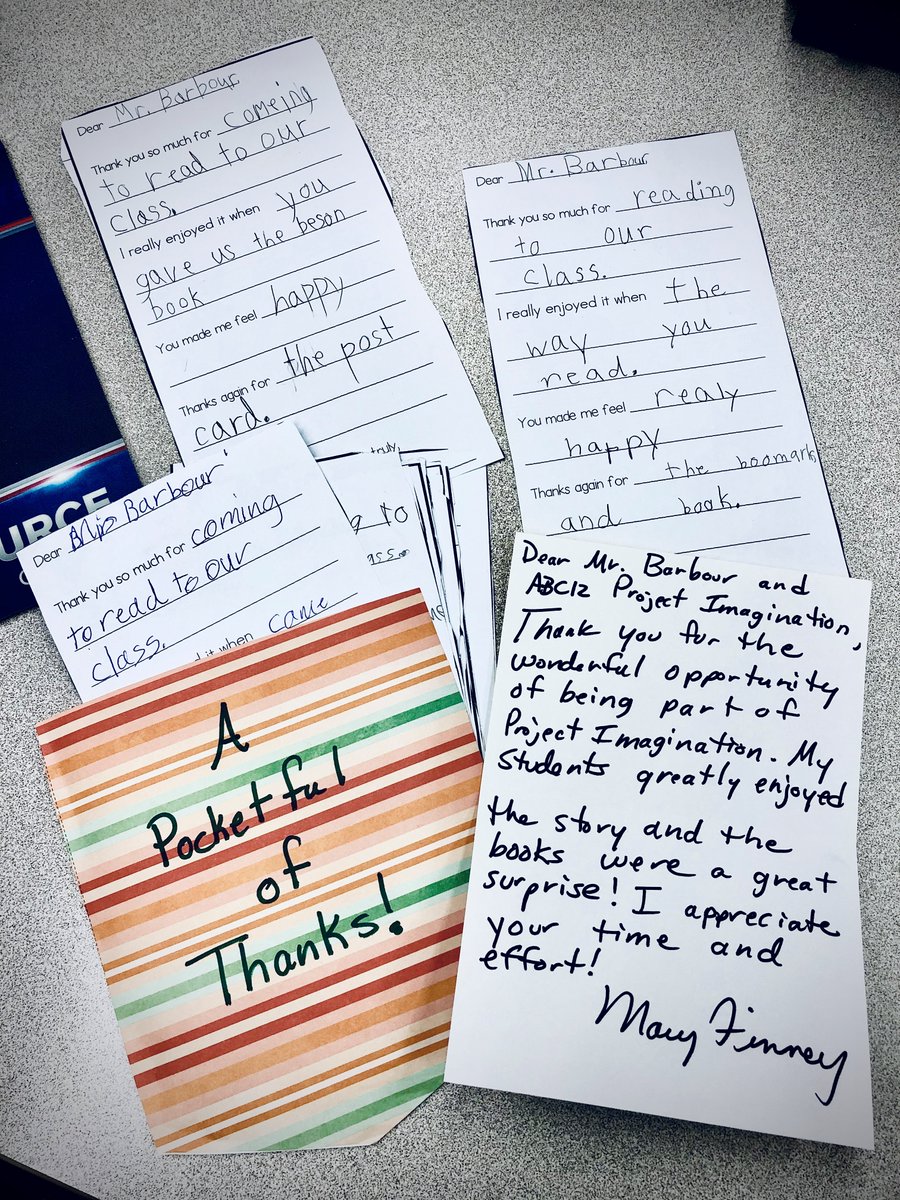 Dear Mr. Barbour
Thank you so much for comeing
to read to our
class.
I really enjoyed it when you
gave us the beson
book
You made me feel happy
Thanks again for the post
card.
Dear Mr. Barbour
Thank you so much for reading
to our
class.
I really enjoyed it when the
way you
read.
You made me feel realy
happy
Thanks again for the boomarks,
and book.
truly,
to
URCE
Dear Barbour
Thank you so much for coming
to read to our
class.
it when came
A
Pocketful
of
Thanks!
Dear Mr. Barbour and
ABC12 Project Imagination,
Thank you for the
wonderful opportunity
of being part of
Project Imagination. My
students greatly enjoyed
the story and the
books were a great
surprise! I appreciate
your time and
effort!
Mary Finney